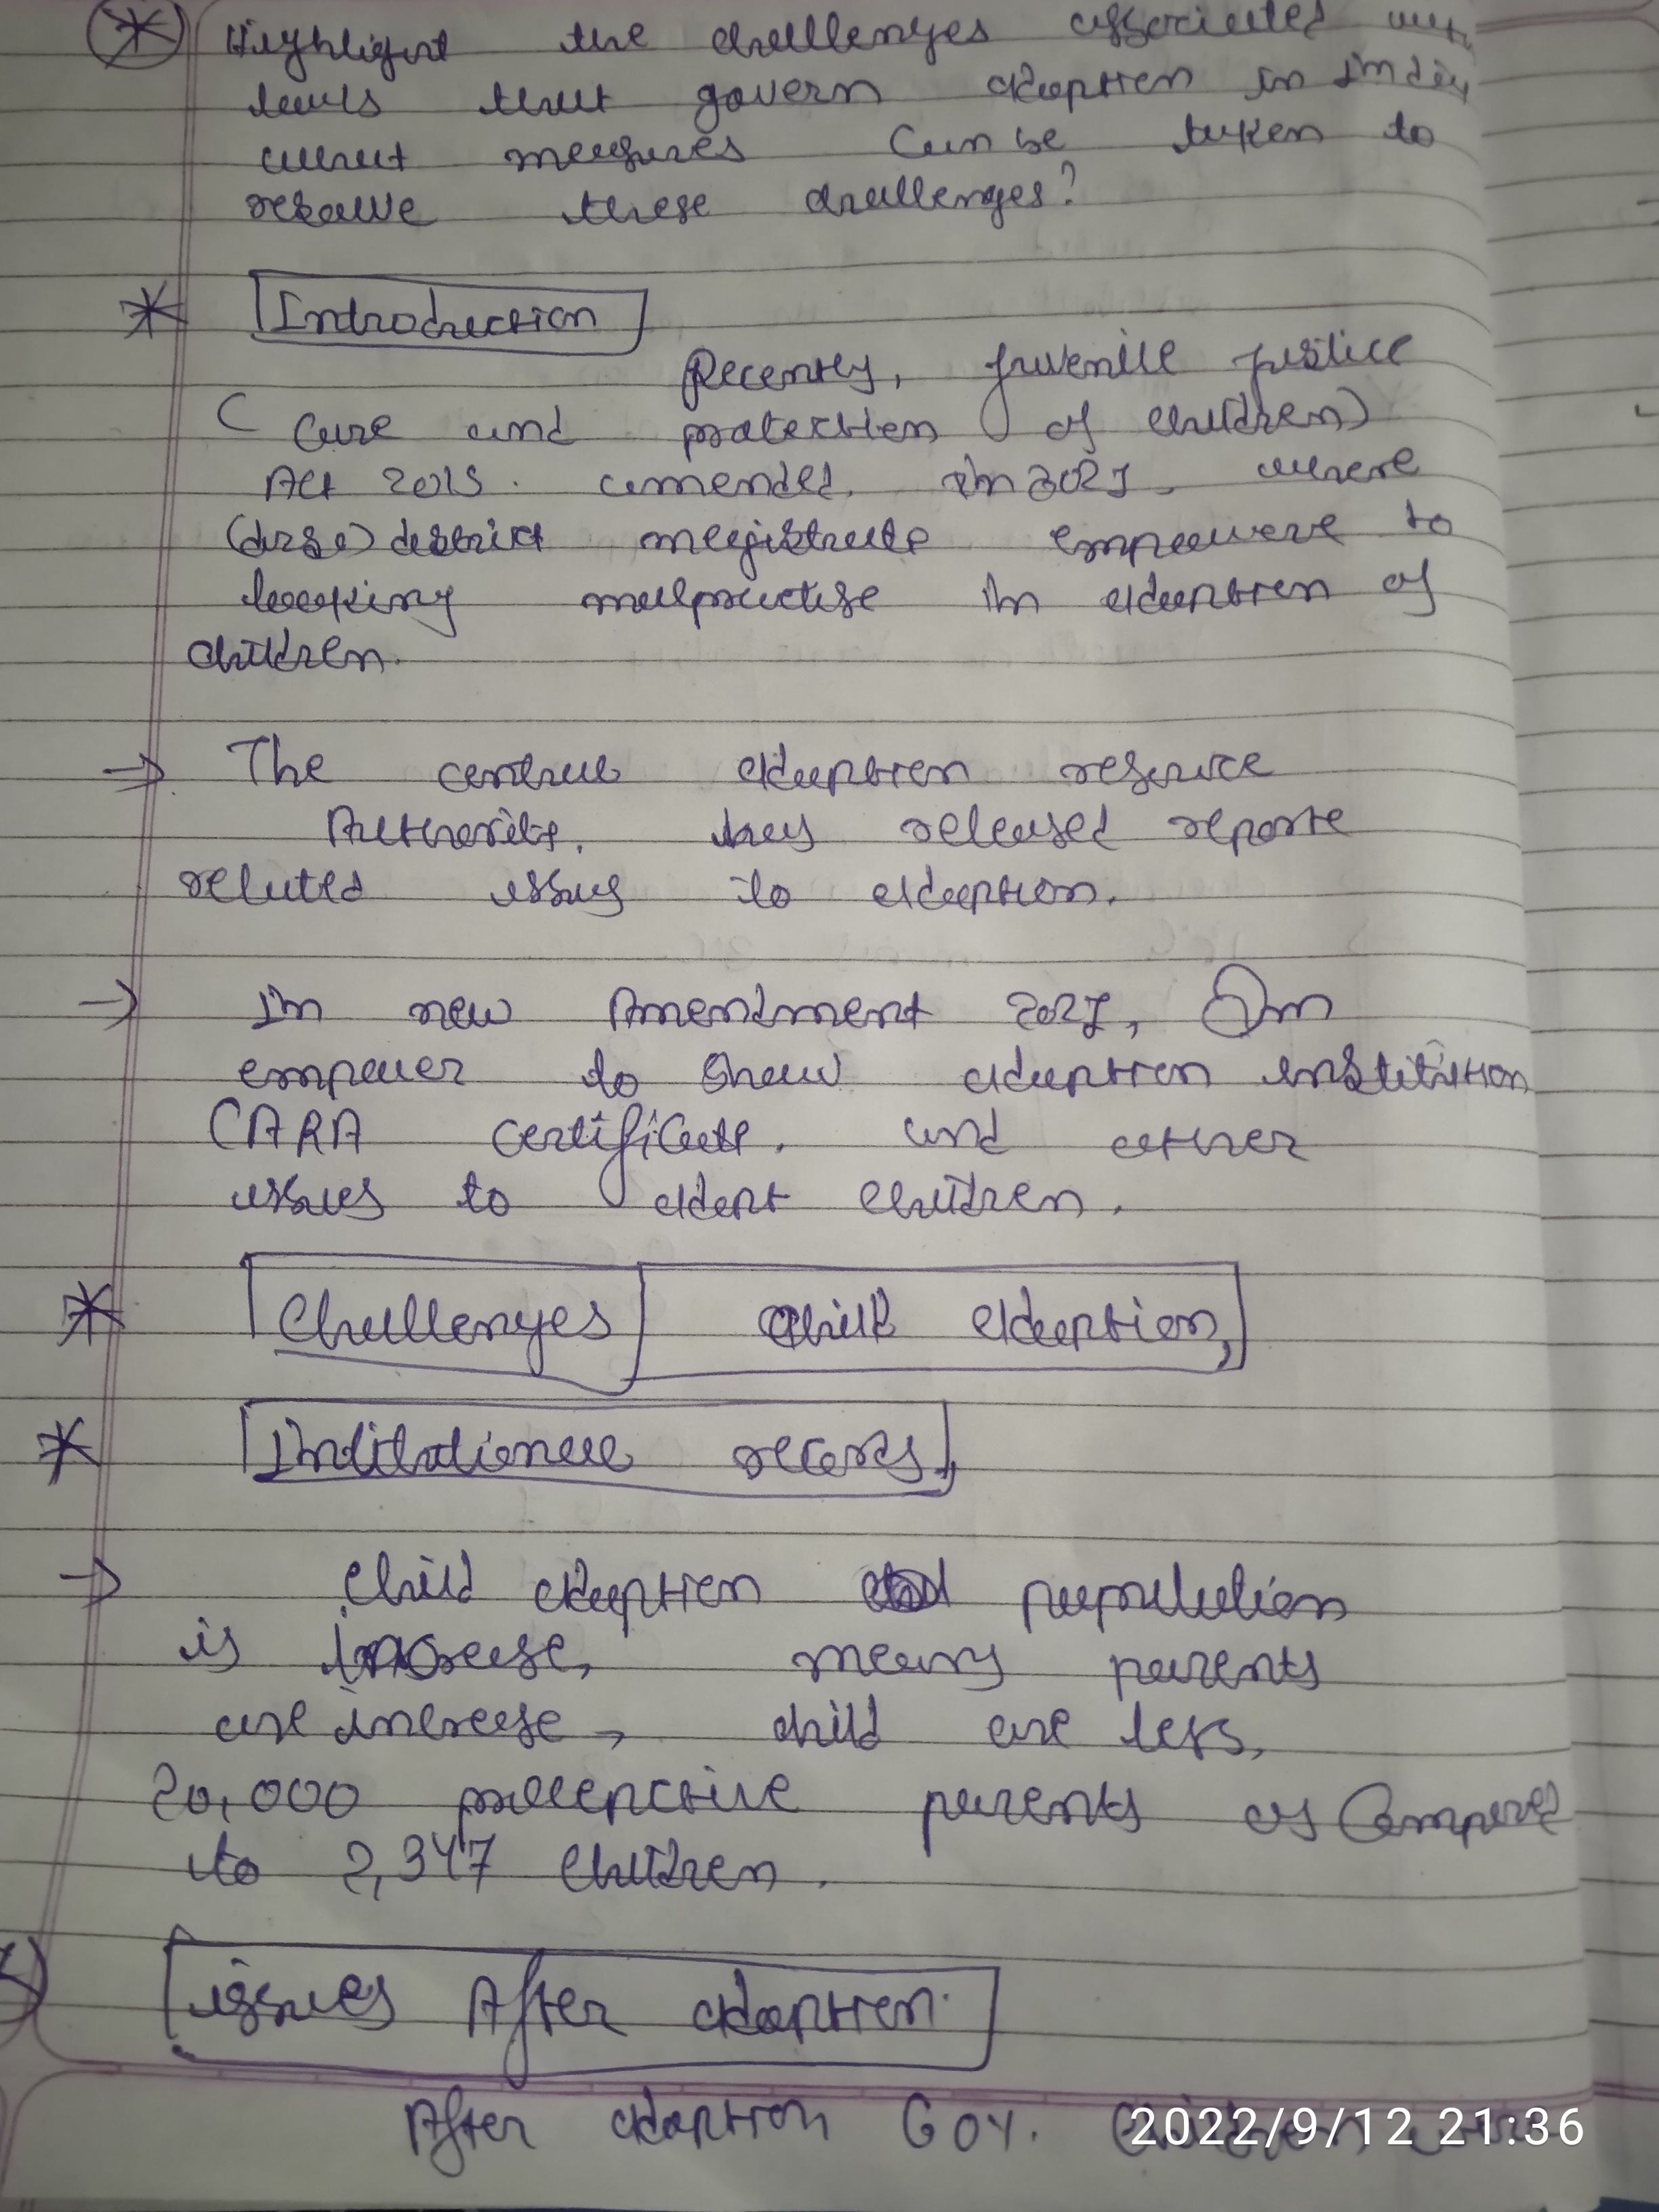 Highlight the challenges associated with
laws that govern adoption in India
what measures can be taken to
resolve these challenges?
Introduction
Recently, Juvenile justice
( Care and protection of children)
Act 2015. amended in 2021, where
district magistrate empowere to
looking malpractise in adoption of
children.
→ The central adoption resource
Authority, has released reporte
related issus to adoption.
→ In new Amendment 2021, Dm
empower to show adoption institution
CARA certificate, and other
issues to adopt children.
Challenges child adoption,
→ Child adoption population
is increase, means parents
are increase, child are less,
20,000 parents as compared
to 2,347 children.
issues After adoption.
After adoption Goy.
2022/9/12 21:36